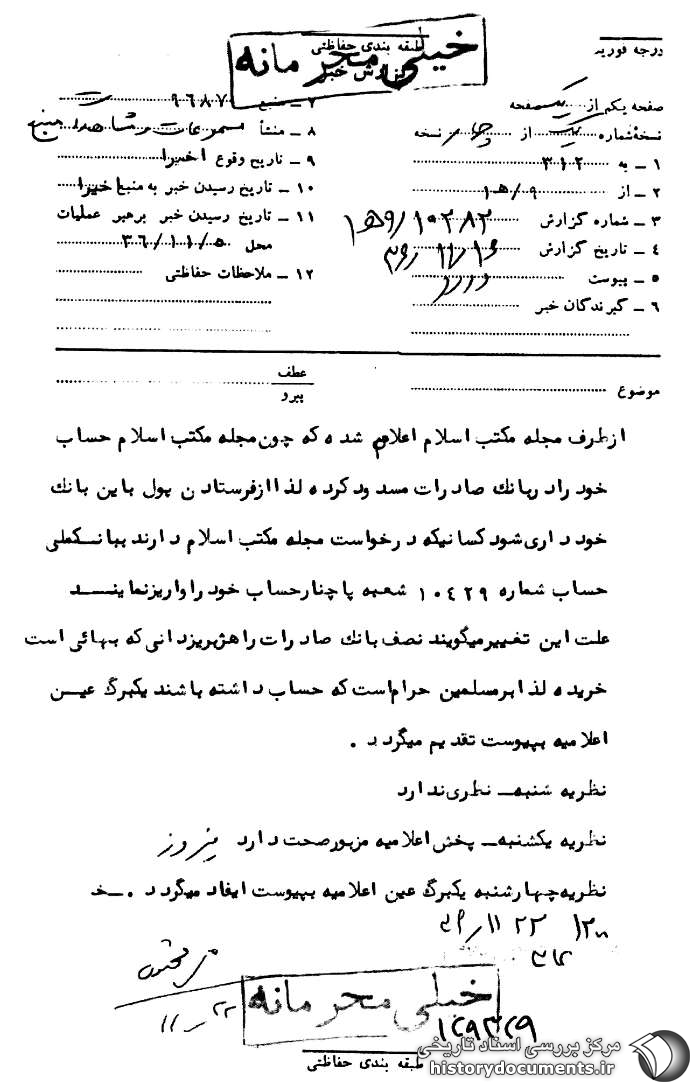 درجه فوریت
طبقه بندی حفاظتی
خیلی محرمانه
گزارش خبر
صفحه یکم از یک صفحه
نسخهٔ شماره یک از چهار نسخه
۱ ــ به ۳۱۲
۲ ــ از ۹/ﻫ۱
۳ ــ شماره گزارش ۱۰۲۸۲/۹ﻫ۱
۴ ــ تاریخ گزارش
۵ ــ پیوست دارد
۶ ــ گیرندگان خبر
۷ ــ منبع ۹۶۸۷
۸ ــ منشأ مسموعات و مشاهدات منبع
۹ ــ تاریخ وقوع اخیرا
۱۰ ــ تاریخ رسیدن خبر به منبع اخیرا
۱۱ ــ تاریخ رسیدن خبر برهبر عملیات
محل ۳۶/۱۱/۵
۱۲ ــ ملاحظات حفاظتی
موضوع
عطف
پیرو
ازطرف مجله مکتب اسلام اعلام شده که چون مجله مکتب اسلام حساب
خود رادربانك صادرات مسدود کرده لذا ازفرستادن پول باین بانك
خودداری شود کسانیکه درخواست مجله مکتب اسلام دارند ببانک ملی
حساب شماره ۱۰٤۲۹ شعبه پاچنارحساب خود راواریزنماینــد
علت این تغییرمیگویند نصف بانك صادرات راهژبریزدانی که بهائی است
خریده لذا برمسلمین حرام است که حساب داشته باشند یکبرگ عیــن
اعلامیه بپیوست تقدیم میگردد .
نظریه شنبه ــ نظری ندارد
نظریه یکشنبه ــ پخش اعلامیه مزبورصحت دارد
نظریه چهارشنبه یکبرگ عین اعلامیه بپیوست ایفاد میگردد . ــخ
خیلی محرمانه
۱۲۹۳۲۹
طبقه بندی حفاظتی
مرکز بررسی اسناد تاریخی
historydocuments.ir